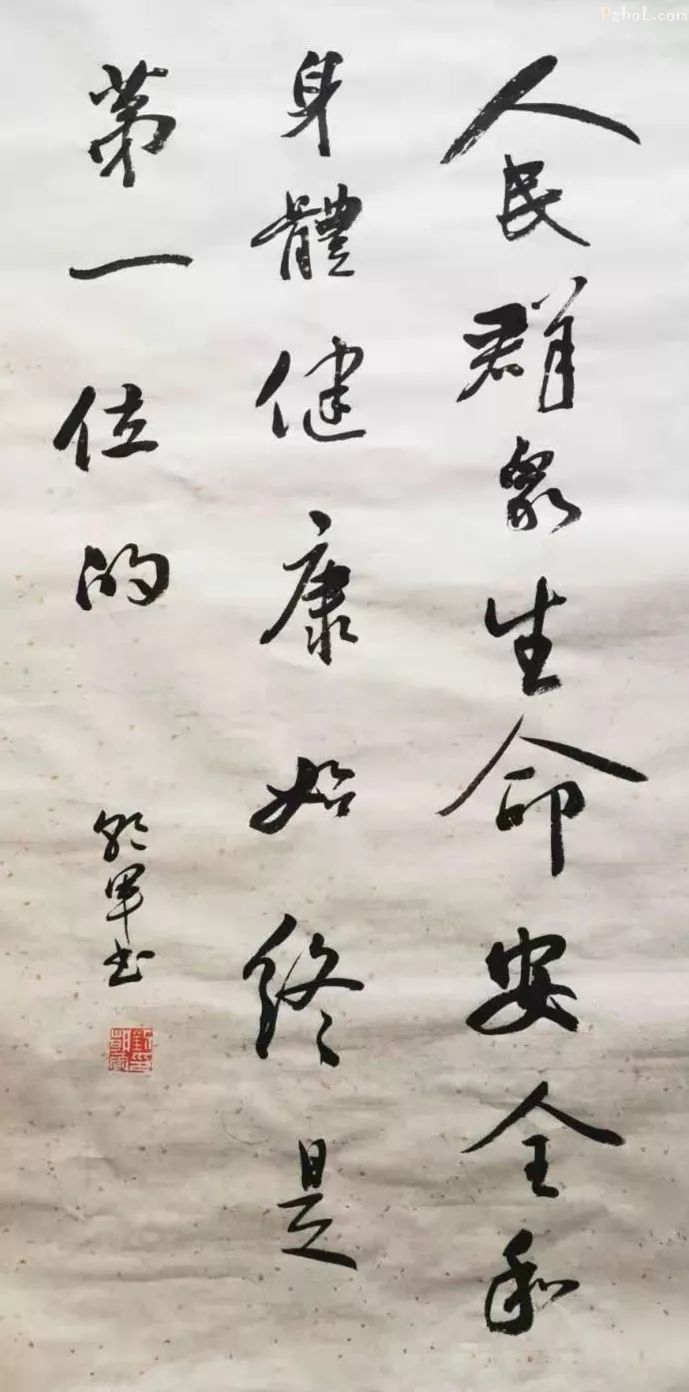 人民群众生命安全和
身體健康始终是
第一位的
朝軍书
PzhoL.com